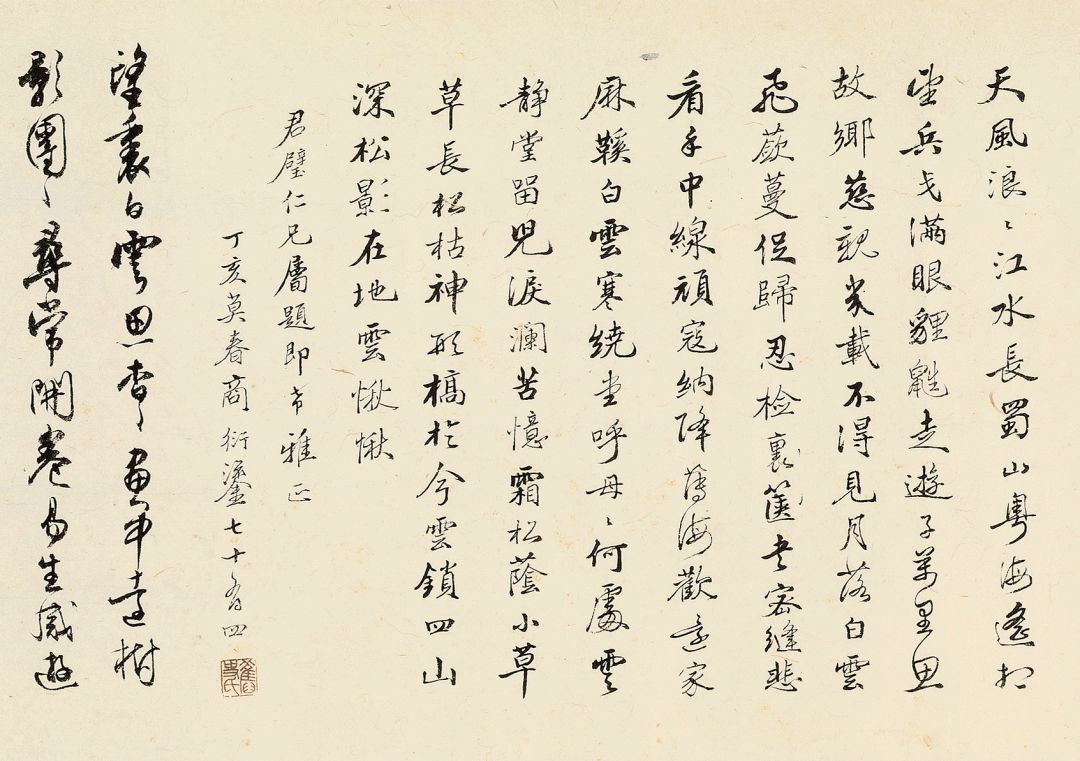 天風浪〻江水長蜀山粵海遙相
望兵戈滿眼貍鼪走遊子萬里思
故鄉慈親岁載不得見月落白雲
飛蕨蔓促歸忍检裏篋衣密縫悲
看手中線頑寇納降薄海歡還家
麻鞵白雲寒繞堂呼母〻何處雲
靜堂留兒淚澜苦憶霜松蔭小草
草長松枯神形槁於今雲鎖四山
深松影在地雲愀愀
君璧仁兄屬題即希雅正
丁亥莫春商衍鎏七十有四
望裏白雲思杳〻畫中遠樹
影團〻尋常開卷易生感遊